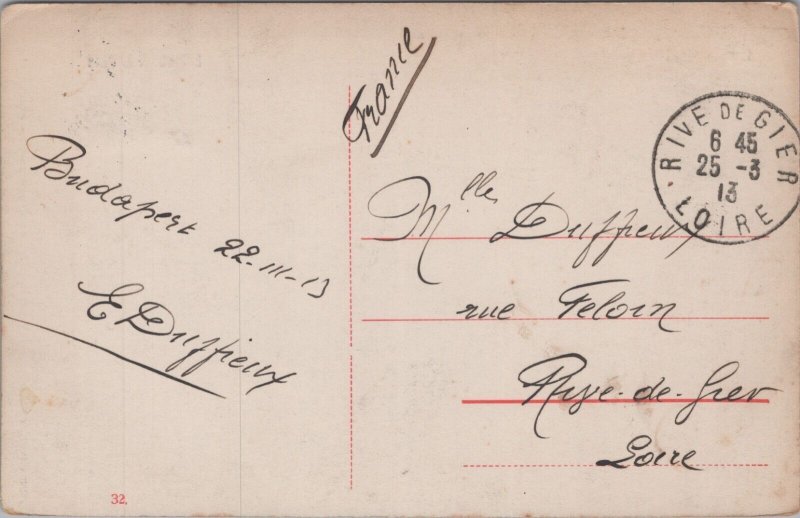 France
Budapest 22-III-13
E Duffieux
32.
Mlles Duffieux
rue Feloin
Rive-de-Gier
Loire
RIVE DE GIER
6 45
25 -3
13
LOIRE